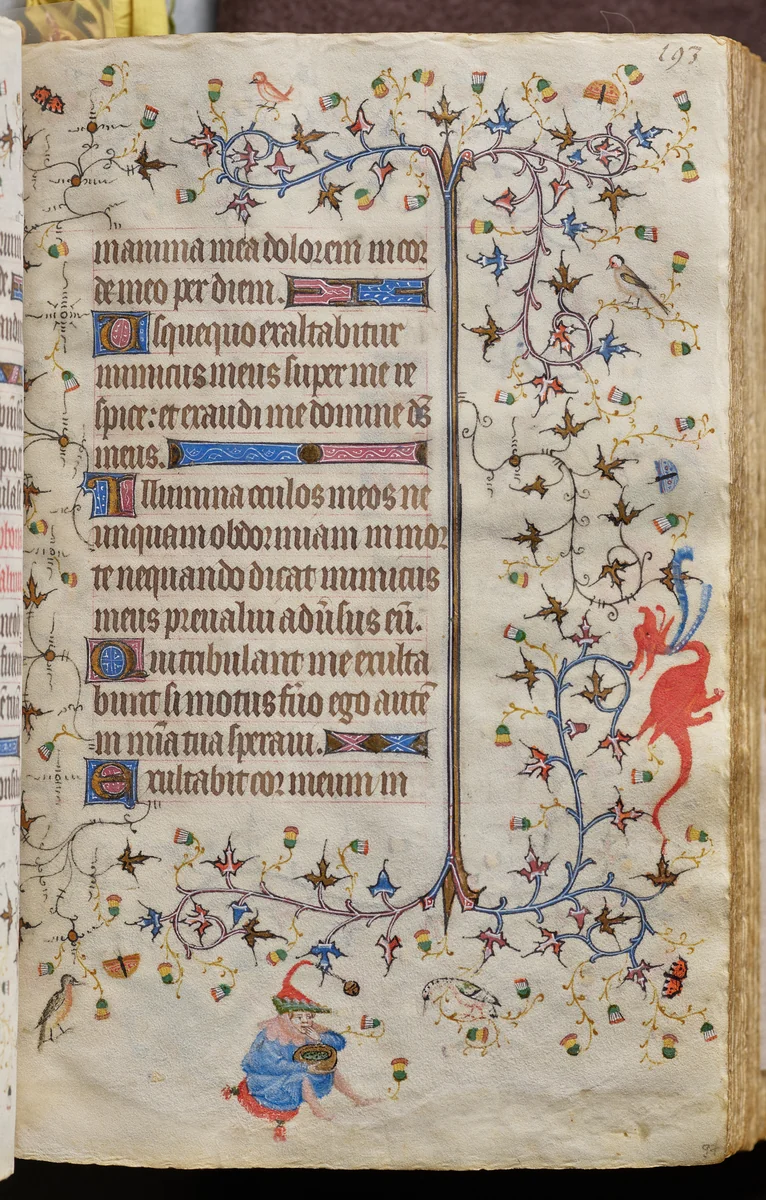 193
in anima mea dolorem in cor
de meo per diem.
Usquequo exaltabitur
inimicus meus super me re
spice: et exaudi me domine ds̄
meus.
Illumina oculos meos ne
unquam obdormiam in mor
te nequando dicat inimicus
meus prevalui adūsus eū.
Qui tribulant me exulta
bunt si motus fūo ego autē
in mīa tua speravi.
Exultabit cor meum in